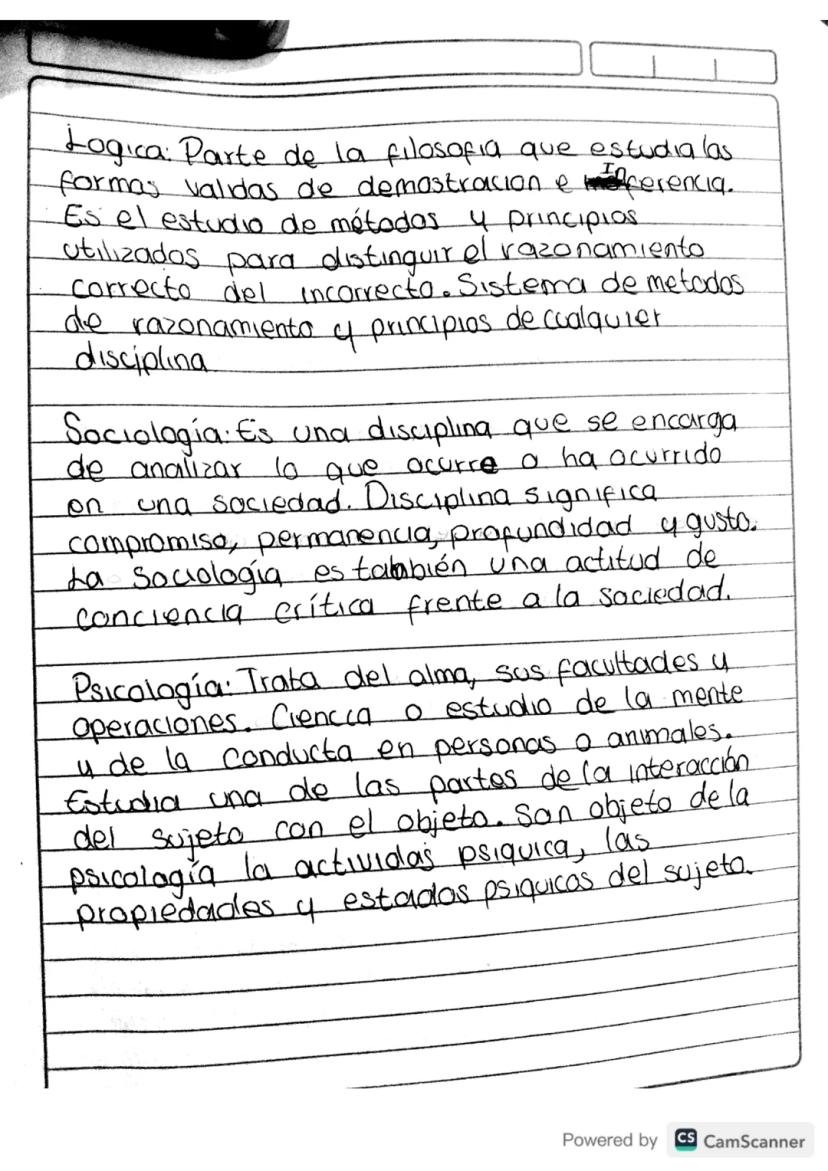 Logica: Parte de la filosofia que estudia las
formas validas de demostracion e Inferencia.
Es el estudio de métodos y principios
utilizados para distinguir el razonamiento
correcto del incorrecto. Sistema de metodos
de razonamiento y principios de cualquier
disciplina
Sociología: Es una disciplina que se encarga
de analizar lo que ocurre o ha ocurrido
en una sociedad. Disciplina significa
compromiso, permanencia, profundidad y gusto.
La Sociología es también una actitud de
conciencia crítica frente a la sociedad.
Psicología: Trata del alma, sus facultades y
operaciones. Ciencia o estudio de la mente
y de la conducta en personas o animales.
Estudia una de las partes de la interacción
del sujeto con el objeto. Son objeto de la
psicología la actividas psiquica, las
propiedades y estados psiquicos del sujeto.
Powered by CS CamScanner